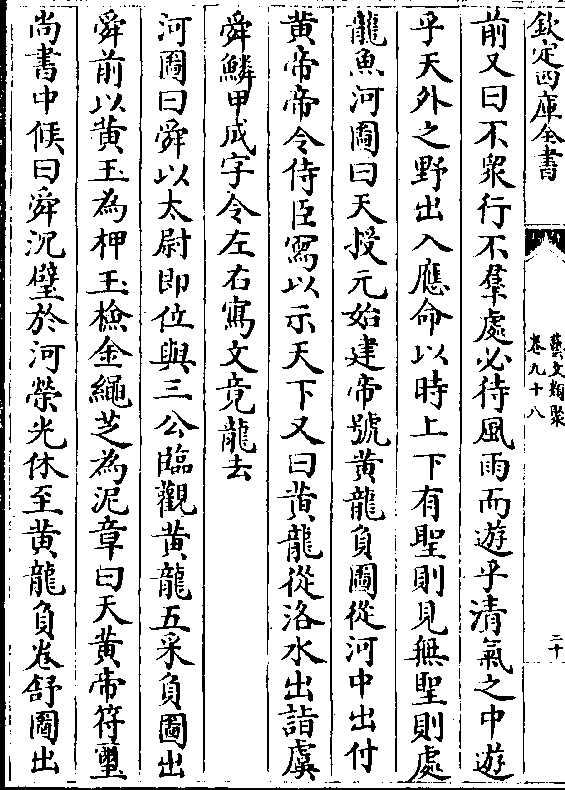 欽定四庫全書
藝文類聚
卷九十八
二十
前又曰不衆行不羣處必待風雨而遊乎清氣之中遊
乎天外之野出入應命以時上下有聖則見無聖則處
龍魚河圖曰天授元始建帝號黄龍負圖從河中出付
黄帝帝令侍臣寫以示天下又曰黄龍從洛水出詣虞
舜鱗甲成字令左右寫文竟龍去
河圖曰舜以太尉即位與三公臨觀黄龍五采負圖出
舜前以黄玉為柙玉檢金繩芝為泥章曰天黄帝符璽
尚書中候曰舜沉璧於河榮光休至黄龍負卷舒圖出